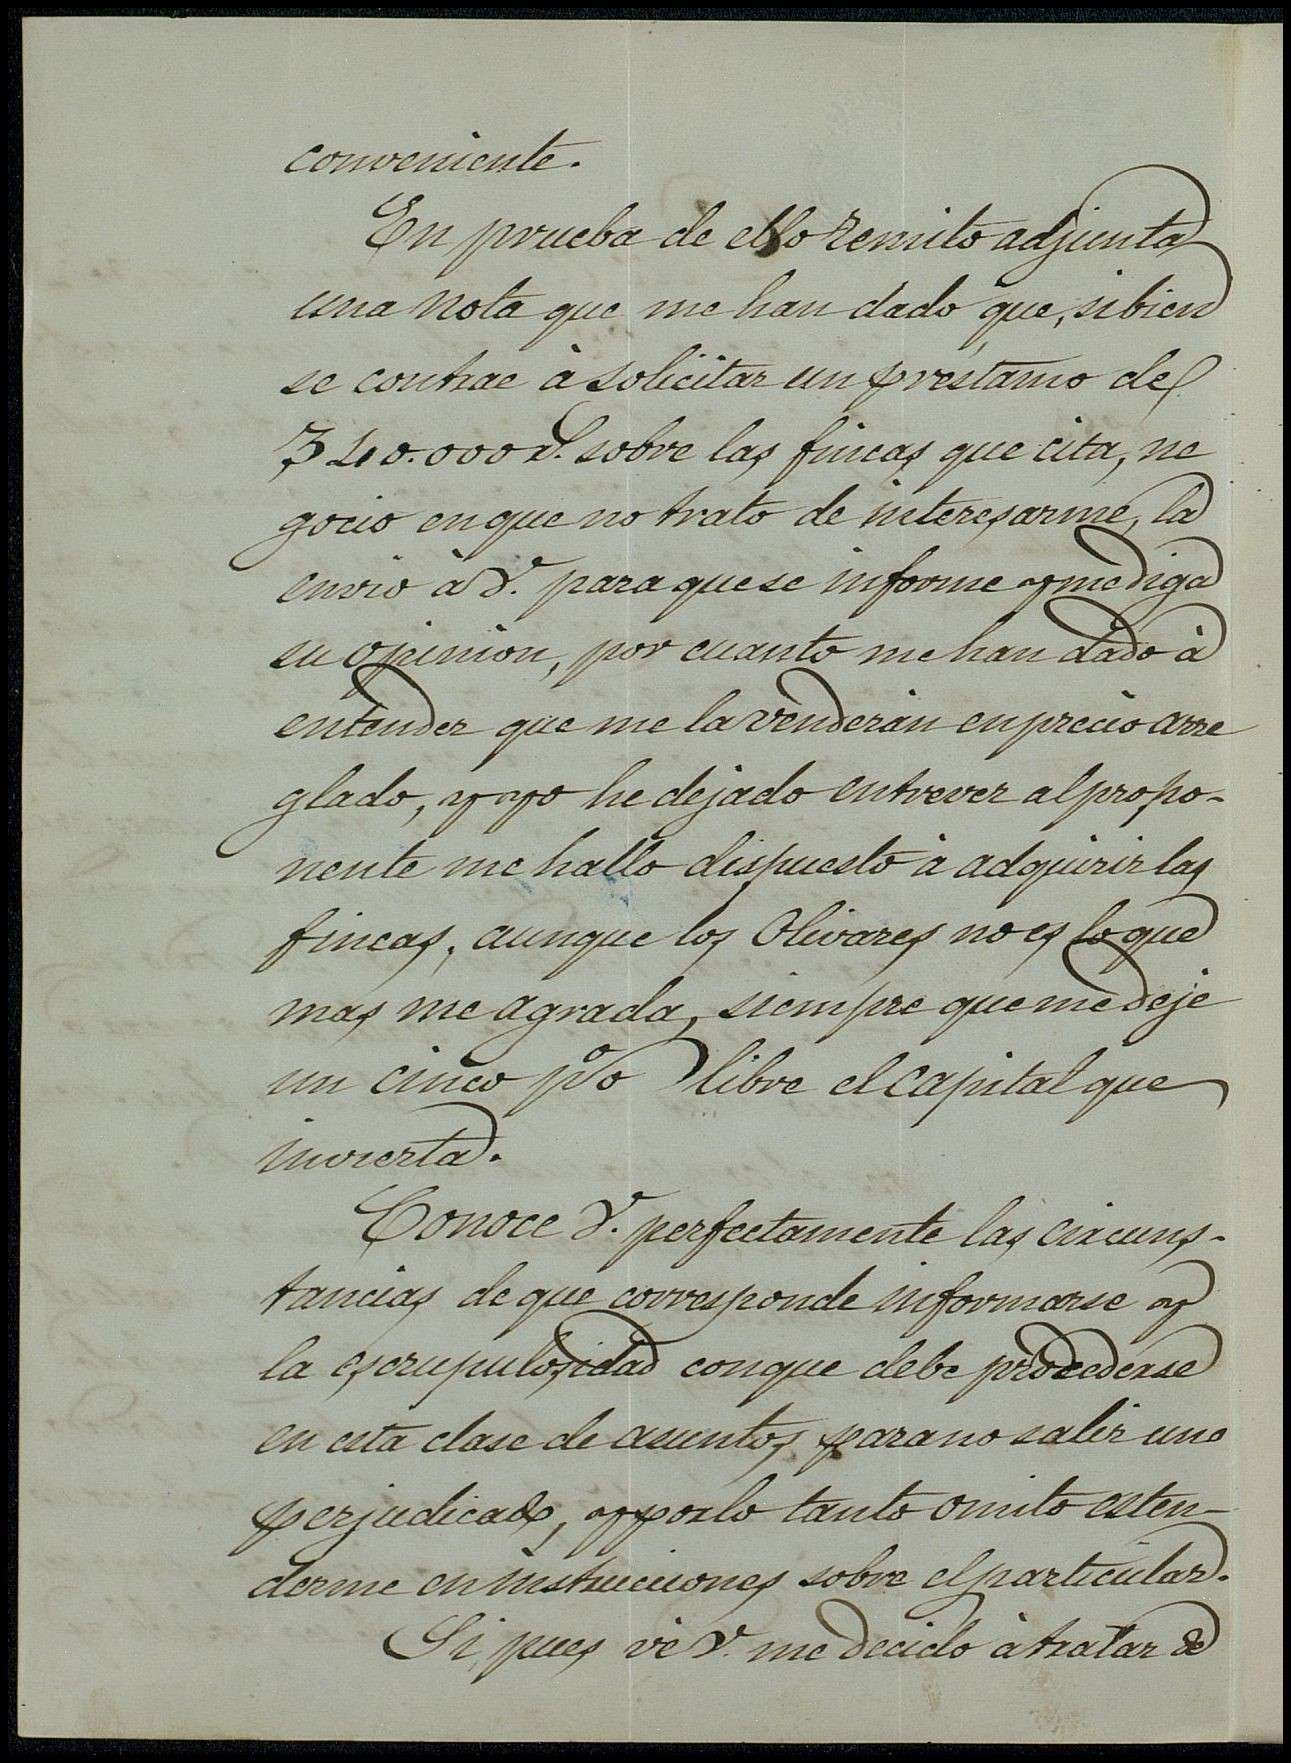 conveniente.
En prueba de ello remito adjunta
una nota que me han dado que, si bien
se contrae à solicitar un préstamo de
340.000 r.s sobre las fincas que cita, ne
gocio en que no trato de interesarme, la
envio à V. para que se informe y me diga
su opinion, por cuanto me han dado à
entender que me la venderán en precio arre
glado, y yo he dejado entrever al propo-
nente me hallo dispuesto à adquirir las
fincas, aunque los Olivares no es lo que
mas me agrada, siempre que me deje
un cinco p%o libre el capital que
invierta.
Conoce V. perfectamente las circuns-
tancias de que corresponde informarse y
la escrupulosidad conque debe procederse
en esta clase de asuntos para no salir uno
perjudicado, y por lo tanto omito esten-
derme en instrucciones sobre el particular.
Si, pues vé V. me decido à tratar de